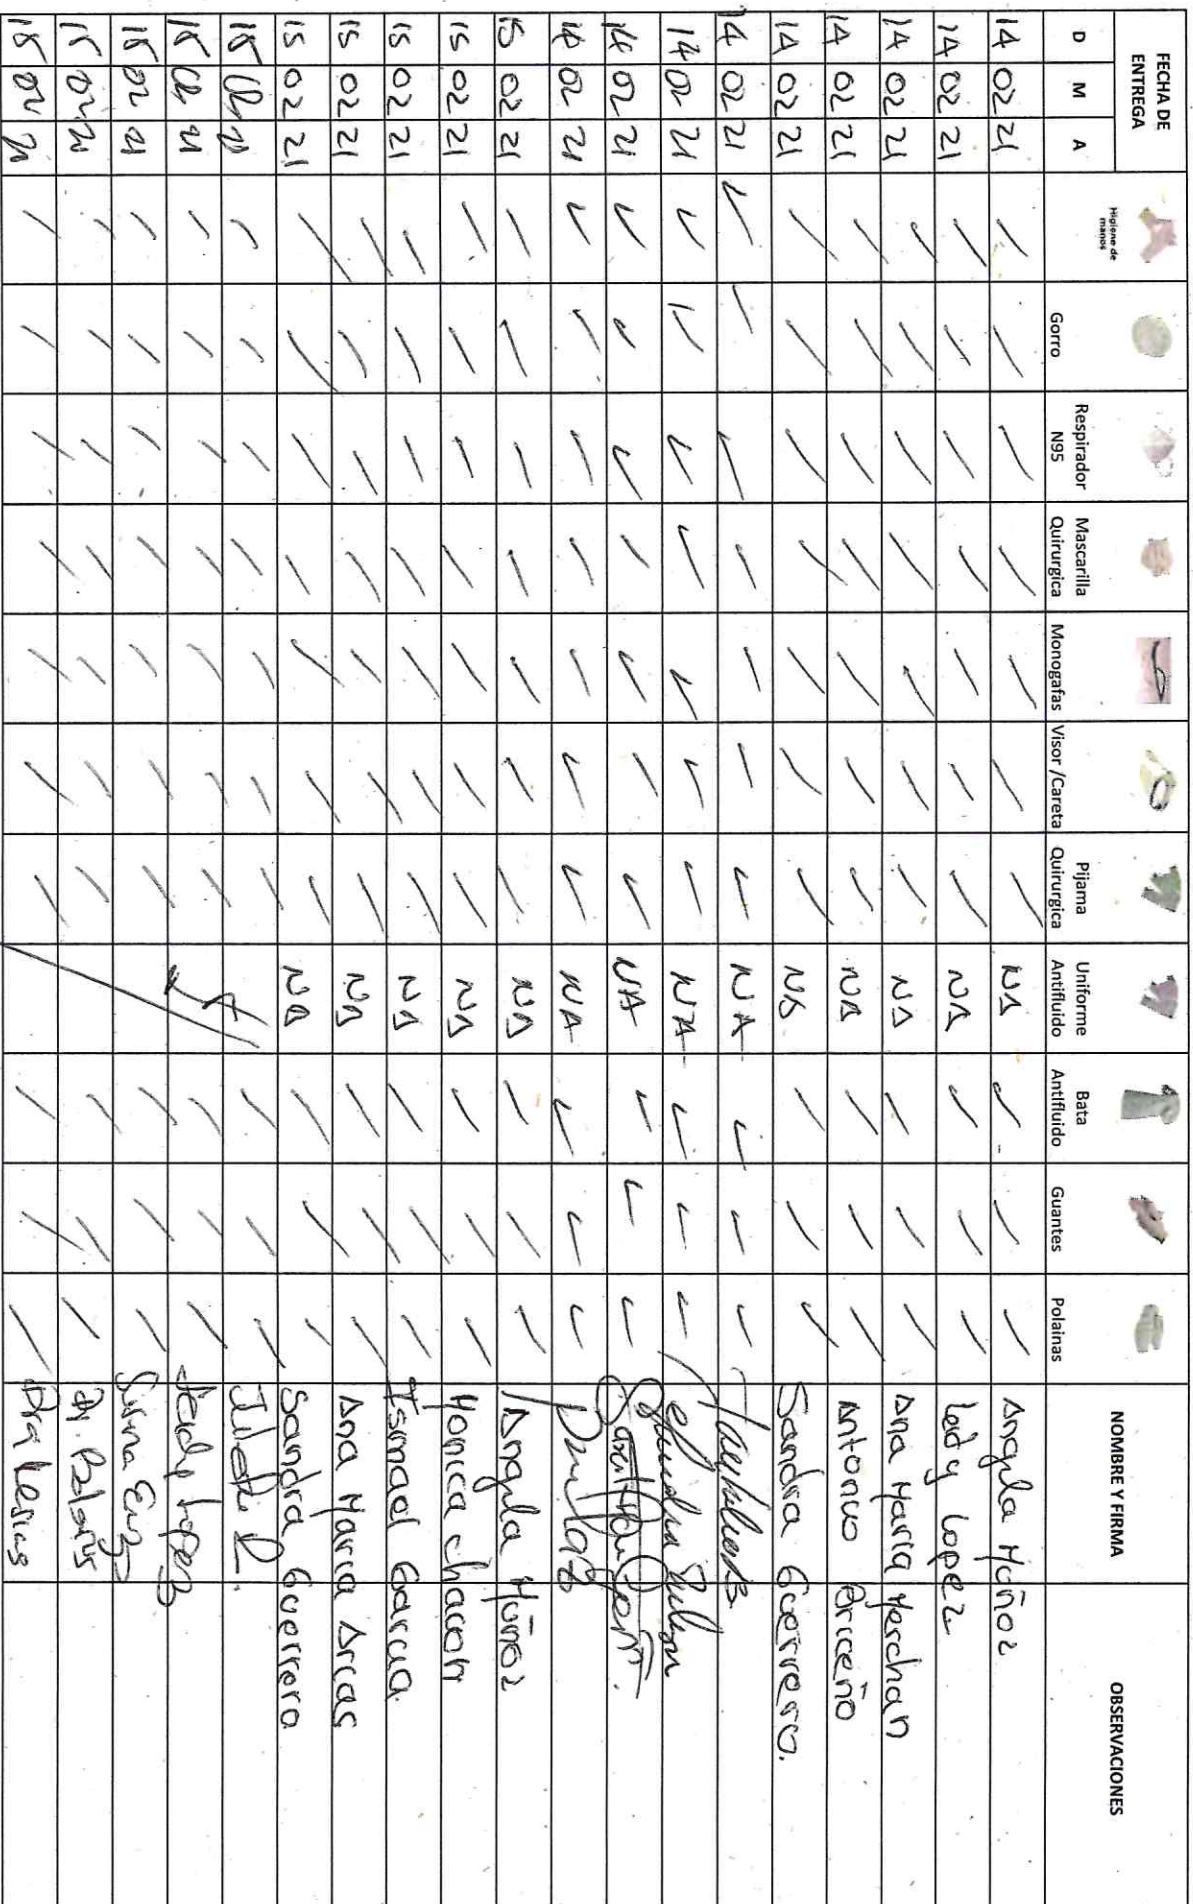 FECHA DE ENTREGA
D M A
Higiene de manos
Gorro
Respirador N95
Mascarilla Quirurgica
Monogafas
Visor /Careta
Pijama Quirurgica
Uniforme Antifluido
Bata Antifluido
Guantes
Polainas
NOMBRE Y FIRMA
OBSERVACIONES
14 02 21 NA Angela Muñoz
14 02 21 NA Leidy Lopez
14 02 21 NA Ana Maria Merchan
14 02 21 NA Antonio Briceño
14 02 21 NA Sandra Guerrero.
14 02 21 NA
14 02 21 NA
14 02 21 NA
14 02 21 NA
15 02 21 NA Angela Muñoz
15 02 21 NA Monica chacon
15 02 21 NA Ismael Garcia
15 02 21 NA Ana Maria Arcas
15 02 21 NA Sandra Guerrero
15 02 21
15 02 21 Lopez
15 02 21
15 02 21 Dr.
15 02 21 Dra